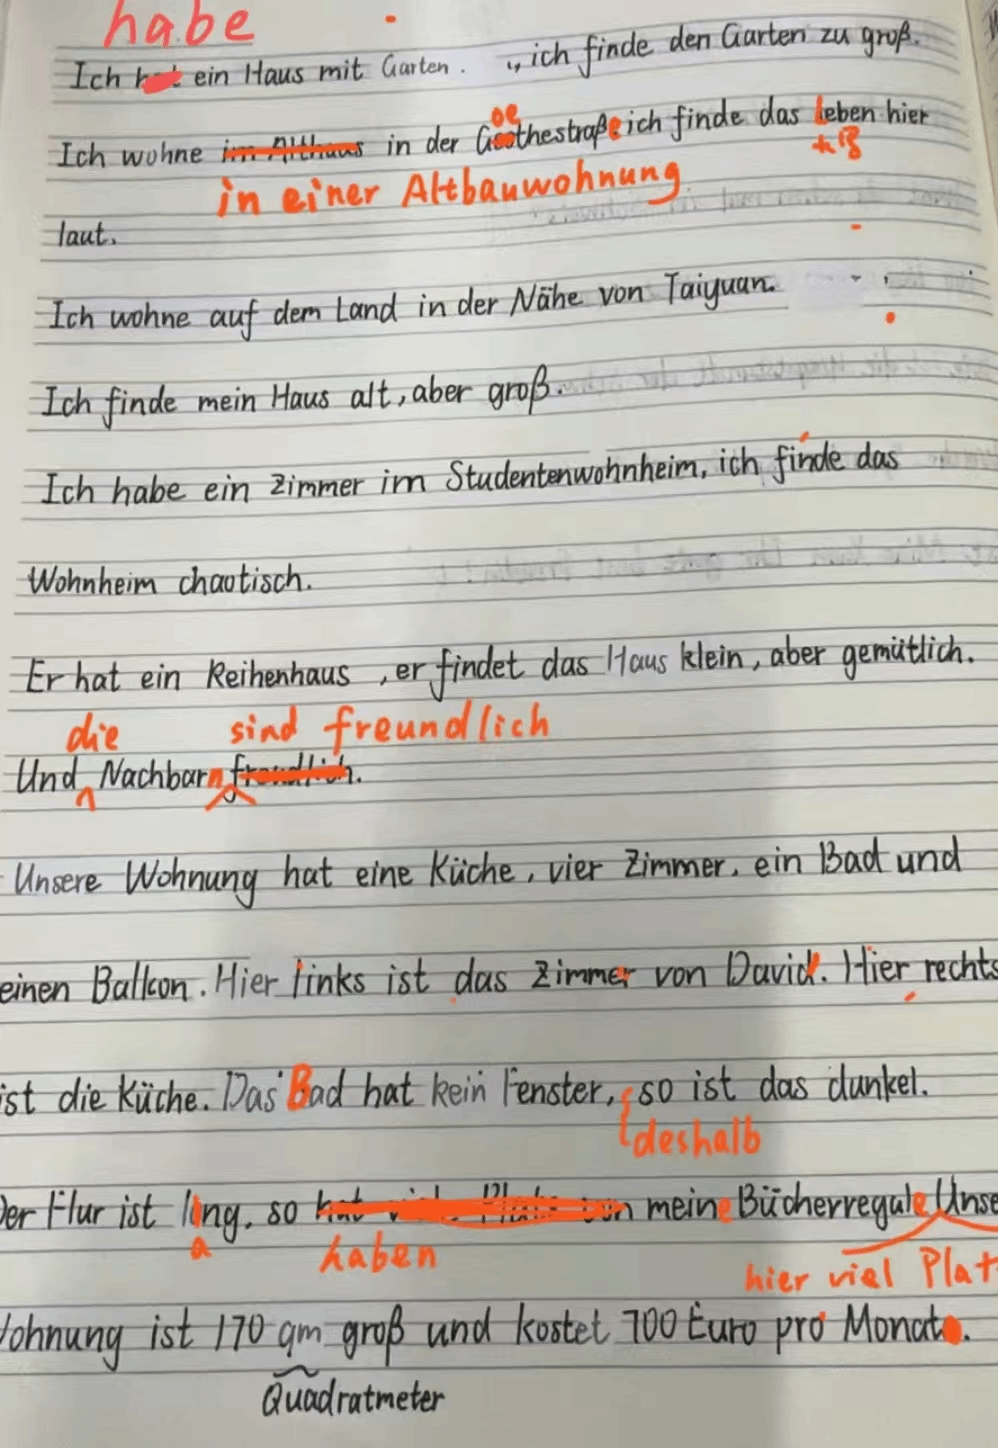 habe
Ich ein Haus mit Garten. ich finde den Garten zu groß.
oe
Ich wohne im Althaus in der Goethestraße ich finde das Leben hier
in einer Altbauwohnung
laut.
Ich wohne auf dem Land in der Nähe von Taiyuan.
Ich finde mein Haus alt, aber groß.
Ich habe ein Zimmer im Studentenwohnheim, ich finde das
Wohnheim chaotisch.
Er hat ein Reihenhaus, er findet das Haus klein, aber gemütlich.
die sind freundlich
Und Nachbarn
Unsere Wohnung hat eine Küche, vier Zimmer, ein Bad und
einen Balkon. Hier links ist das Zimmer von David. Hier rechts
ist die Küche. Das Bad hat kein Fenster, so ist das dunkel.
deshalb
Der Flur ist lang, so meine Bücherregale Unse
a haben
hier viel Plat
Wohnung ist 170 qm groß und kostet 700 Euro pro Monat.
Quadratmeter